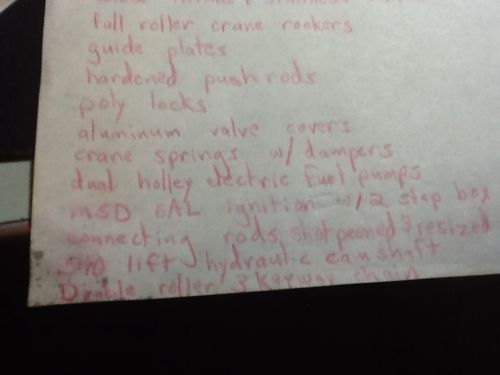 full roller crane rockers
guide plates
hardened pushrods
poly locks
aluminum valve covers
crane springs w/ dampers
dual holley electric fuel pumps
MSD 6AL ignition w/ 2 step box
connecting rods, shotpeened & resized
lift hydraulic camshaft
Double roller 3 keyway chain